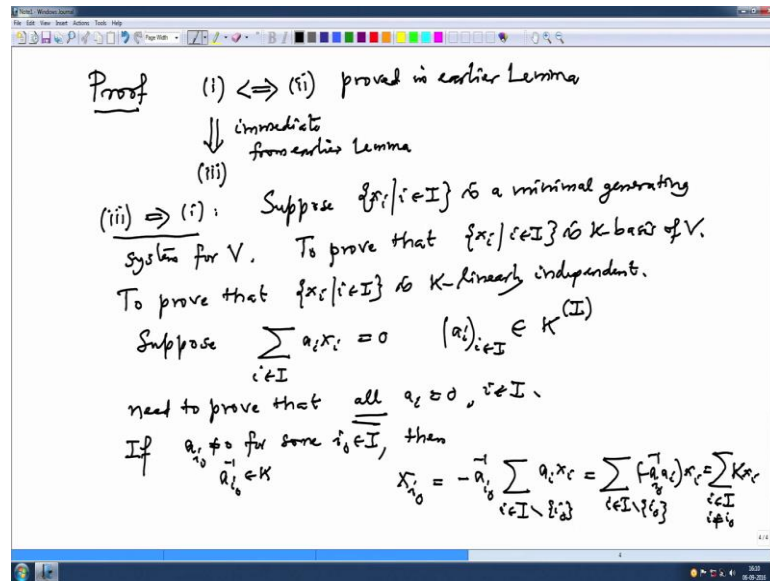 Note1 - Windows Journal
File Edit View Insert Actions Tools Help
Page Width
Proof (i) <=> (ii) proved in earlier Lemma
⇓ immediate
from earlier Lemma
(iii)
(iii) ⇒ (i): Suppose {x_i | i ∈ I} is a minimal generating
system for V. To prove that {x_i | i ∈ I} is K-basis of V.
To prove that {x_i | i ∈ I} is K-linearly independent.
Suppose ∑_{i∈I} a_i x_i = 0 (a_i)_{i∈I} ∈ K^{(I)}
need to prove that all a_i = 0, i ∈ I.
If a_{i_0} ≠ 0 for some i_0 ∈ I, then
a_{i_0}^{-1} ∈ K
x_{i_0} = -a_{i_0}^{-1} ∑_{i∈I∖{i_0}} a_i x_i = ∑_{i∈I∖{i_0}} (-a_{i_0}^{-1} a_i) x_i = ∑_{i∈I, i≠i_0} K x_i
4/4
4
16:10
06-09-2016